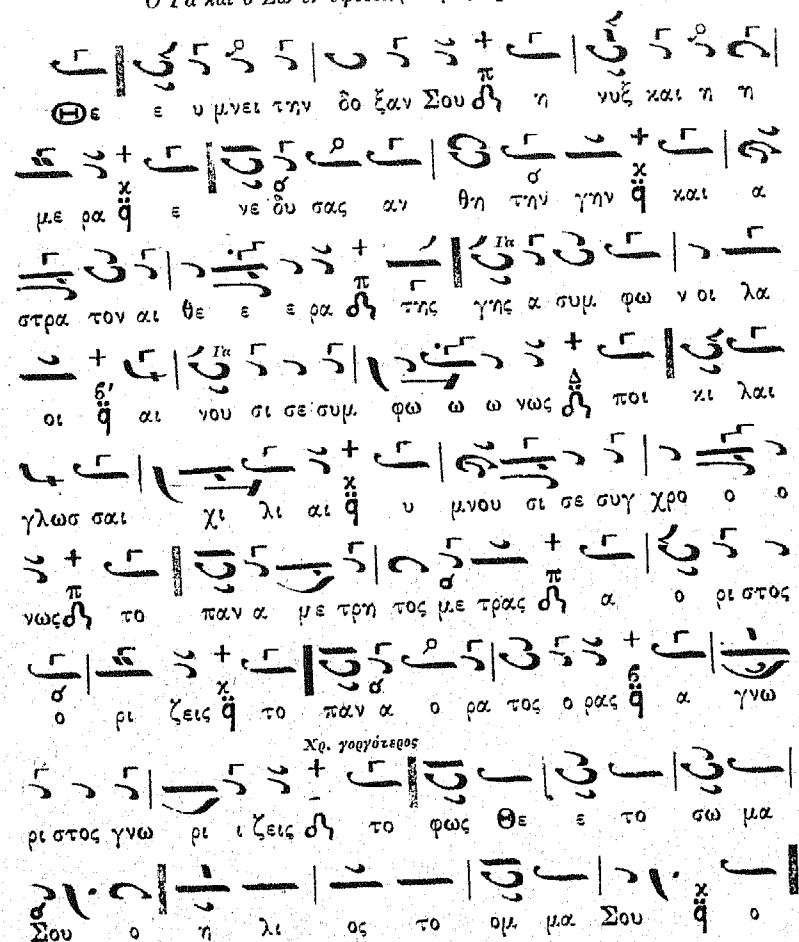 Ο Γα και ο Ζω
Θε ε υ μνει την δο ξαν Σου π η νυξ και η η
με ρα κ ε νε δυ σας αν θη την γην κ και α
Γα
στρα τον αι θε ε ε ρα π της γης α συμ φω ν οι λα
Γα
οι ϐ' αι νου σι σε συμ φω ω ω νως Δ ποι κι λαι
γλωσ σαι χι λι αι κ υ μνου σι σε συγ χρο ο ο
νως π το παν α με τρη τος με τρας π α ο ρι στος
ο ρι ζεις κ το παν α ο ρα τος ο ρας ϐ α γνω
Χρ. γοργότερος
ρι στος γνω ρι ι ζεις το φως Θε ε το σω μα
Σου ο η λι ος το ομ μα Σου κ ο